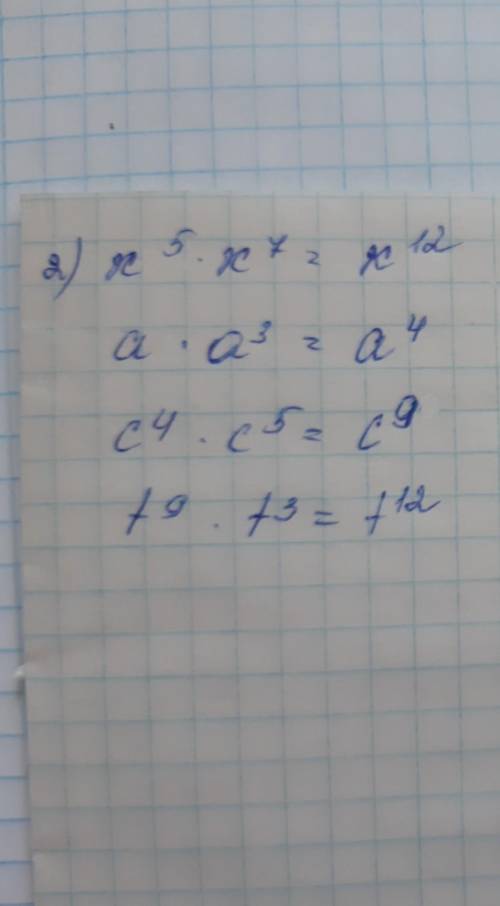 2) x⁵ · x⁷ = x¹²
a · a³ = a⁴
c⁴ · c⁵ = c⁹
t⁹ · t³ = t¹²